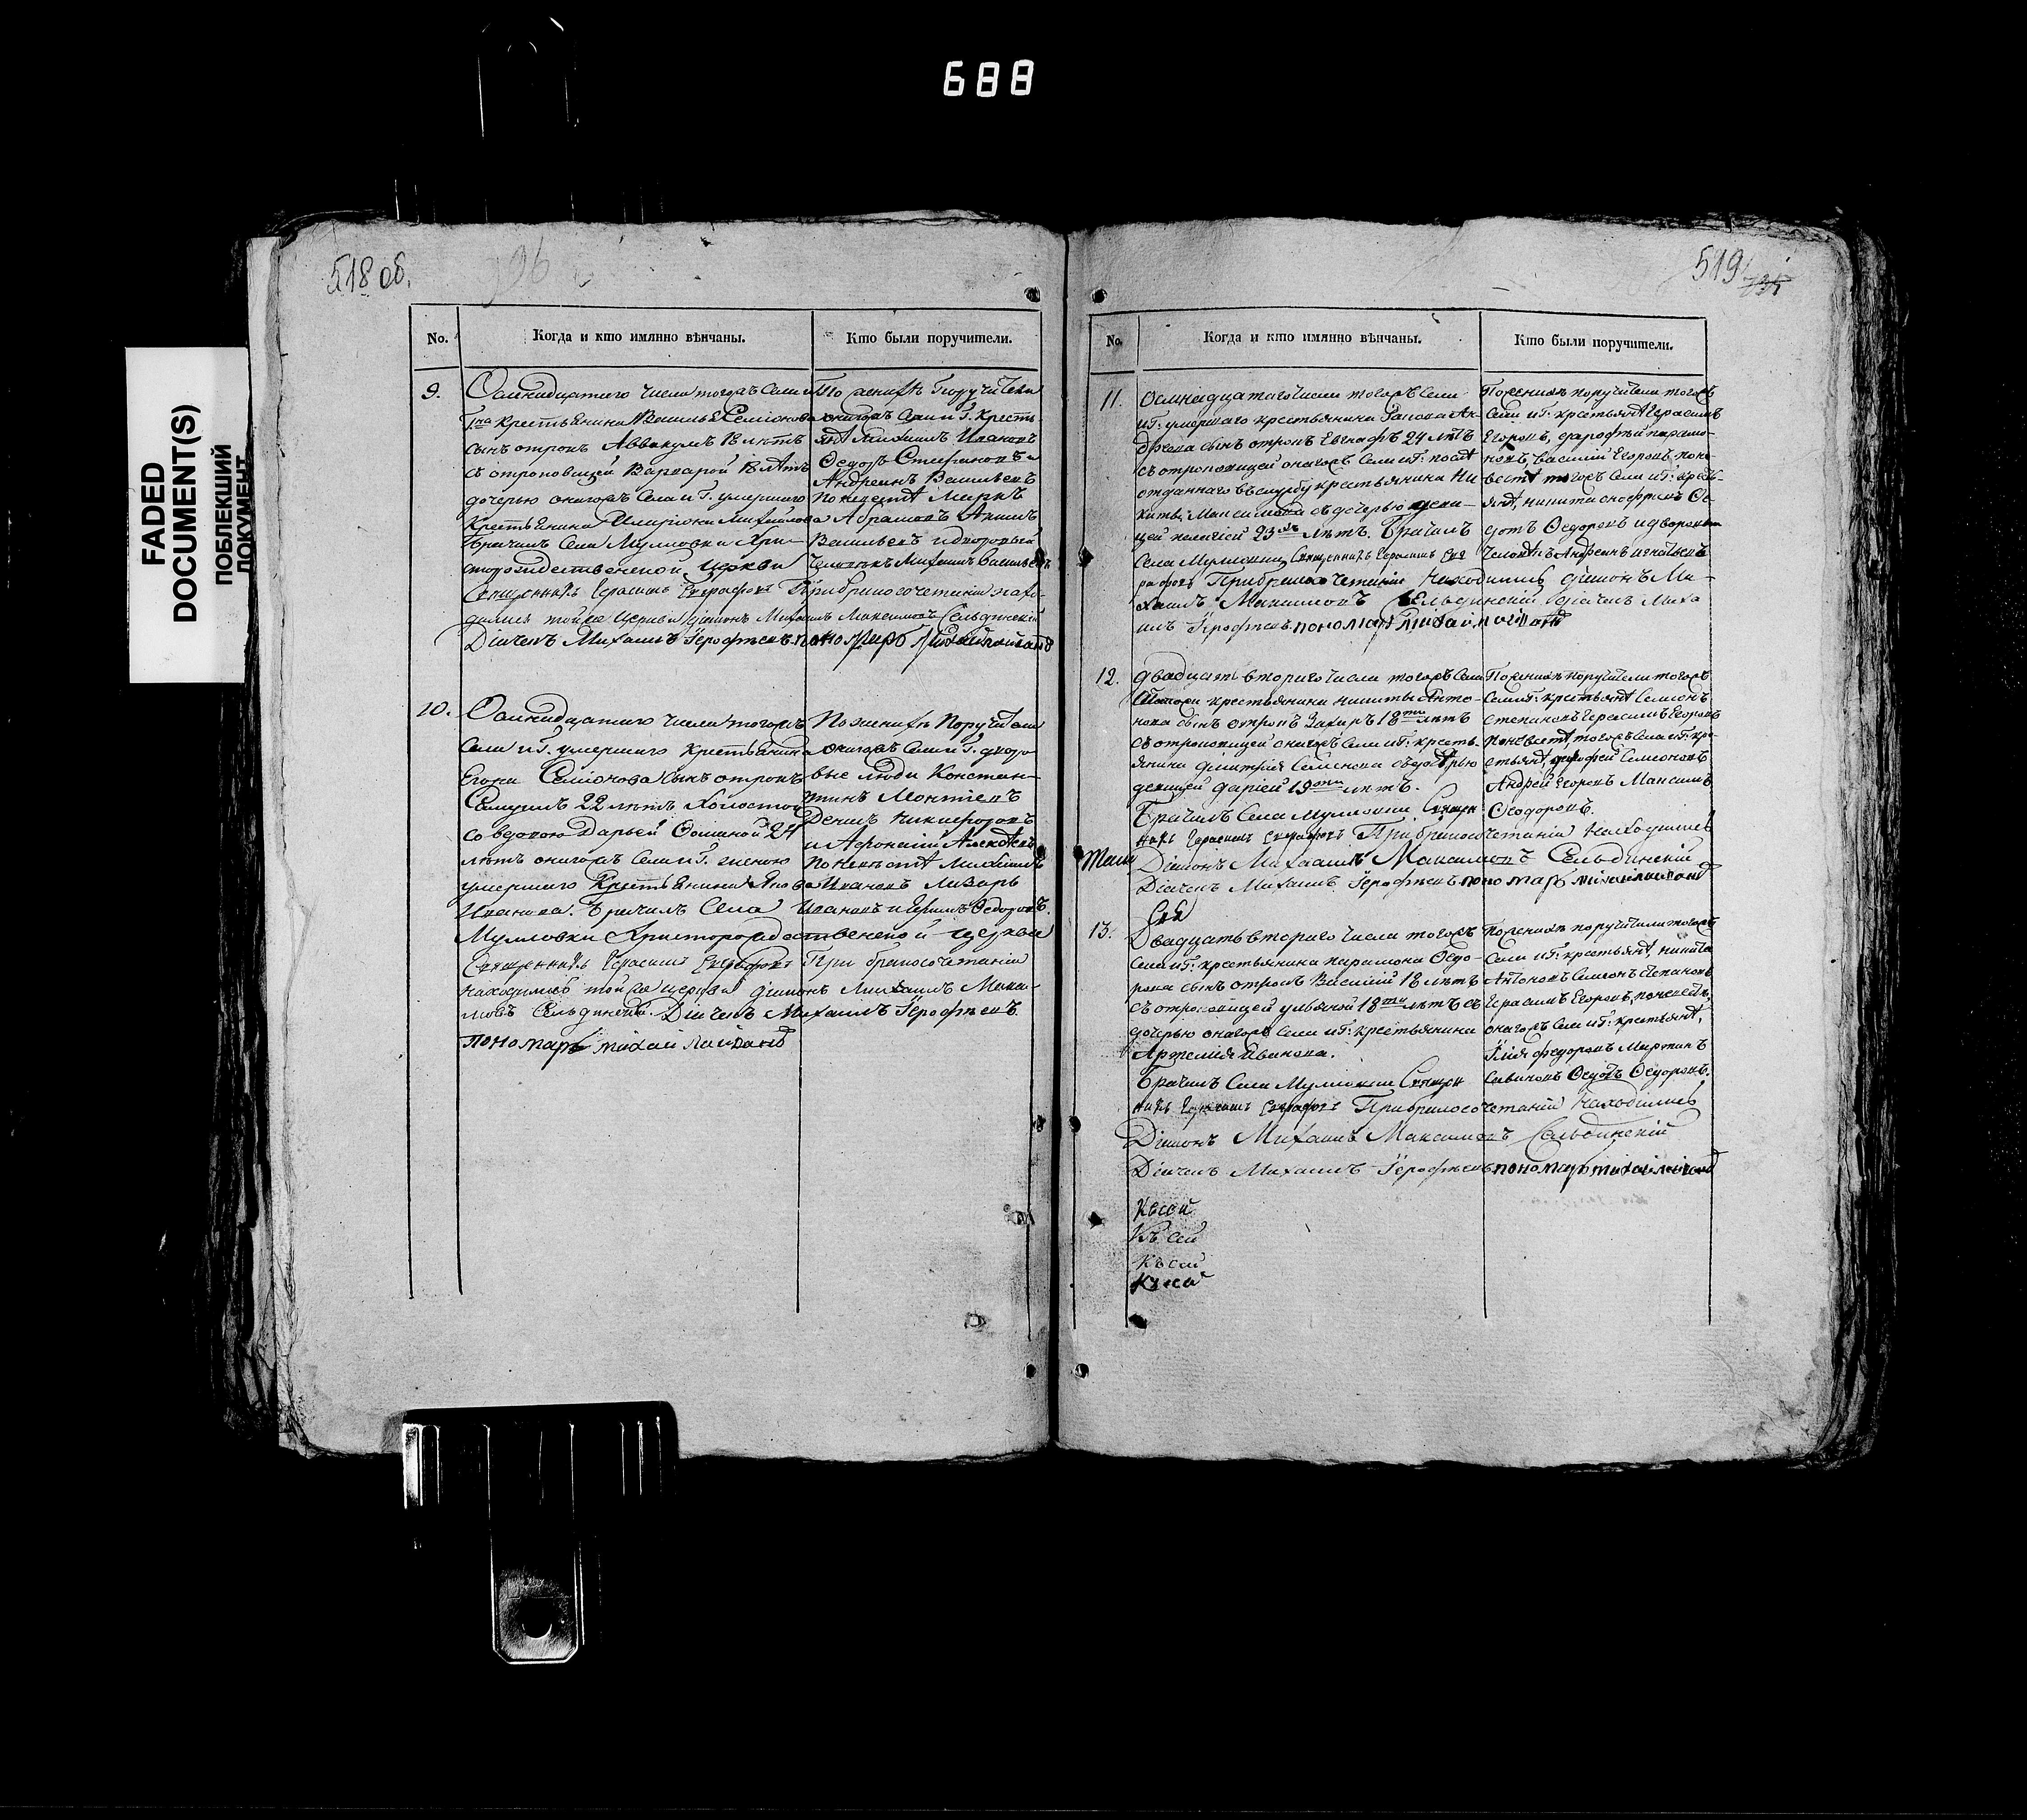 688
FADED
DOCUMENT(S)
ПОБЛЕКШИЙ
ДОКУМЕНТ
518 об.
No. Когда и кто имянно вѣнчаны. Кто были поручители.
9.
Осмнадцатаго числа тогожъ Села и
крестьянина Василья Семіонова
сынъ отрокъ Аввакумъ 18 лѣтъ
съ отроковицей Варварой 18 лѣтъ
дочерью оногожъ Села и Г. умершаго
крестьянина Иларіона Михайлова
Брачилъ Села Мулловки Хри-
сторождественской церкви
Священникъ Герасимъ При бракосочетаніи нахо-
дились тойже церкви діаконъ Михаилъ Максимовъ Сельдинскій
Дiячекъ Михаилъ Герофѣевъ пономарь
По женихѣ Поручители
оногожъ Села и Г. Кресть-
янѣ Михаилъ Ивановъ
Ѳедоръ Стефановъ и
Андреянъ Васильевъ
По невѣстѣ Маркъ
Абрамовъ Акимъ
Васильевъ и дворовый
человѣкъ Михаилъ Васильевъ
10.
Осмнадцатаго числа тогожъ
Села и Г. умершаго крестьянина
Егора Семіонова сынъ отрокъ
Самуилъ 22 лѣтъ холостой
со вдовою Дарьей Ѳоминой 24
лѣтъ оногожъ Села и Г. женою
умершаго Крестьянина Якова
Иванова. Брачилъ Села
Мулловки Христорождественской церкви
Священникъ Герасимъ При бракосочетаніи
находились тойже церкви діаконъ Михаилъ Макси-
мовъ Сельдинскій. Дiячекъ Михаилъ Герофѣевъ
пономарь
По женихѣ Поручители
оногожъ Села и Г. дворо-
вые люди Констан-
тинъ Монтіевъ
Денисъ Никифоровъ
и Афонасій Алексѣевъ
По невѣстѣ Михаилъ
Ивановъ Лазарь
Ивановъ и Ѳедоровъ.
519
No. Когда и кто имянно вѣнчаны. Кто были поручители.
11.
Осмнадцатаго числа тогожъ Села
и Г. умершаго крестьянина Ан-
дреева сынъ отрокъ 24 лѣтъ
съ отроковицей оногожъ Села и Г.
отданнаго въ службу крестьянина Ни
киты Максимова съ дочерью
Пелагіей 23 лѣтъ. Брачилъ
Села Мулловки Священникъ Герасимъ
При бракосочетаніи находились діаконъ Ми-
хаилъ Максимовъ Сельдинскій дiячекъ Миха
илъ Герофѣевъ пономарь
По женихѣ поручители тогожъ
Села и Г. крестьянѣ Герасимъ
Егоровъ, парамо-
новъ, Василій Егоровъ, по не
вестѣ тогожъ Села и Г. кресть-
янѣ, никита Ѳе-
дотъ Ѳедоровъ и дворовый
человѣкъ Андреянъ
12.
Двадцать втораго числа тогожъ Села
крестьянина никиты Анто-
нова сынъ отрокъ Захаръ 18 лѣтъ
съ отроковицей оногожъ Села и Г. кресть-
янина Дмитрія Семенова съ дочерью
девицей Дарiей 19 лѣтъ.
Брачилъ Села Мулловки Священ
никъ Герасимъ При бракосочетаніи находились
Дiаконъ Михаилъ Максимовъ Сельдинскій
Дiячекъ Михаилъ Герофѣевъ пономарь
По женихѣ поручители тогожъ
Села и Г. крестьянѣ Семіонъ
Степановъ Герасимъ Егоровъ
по невѣстѣ, тогожъ Села и Г. кре-
стьянѣ, Семіоновъ
Андрей Егоровъ Максимъ
Ѳеодоровъ.
13.
Двадцать втораго числа тогожъ
Села и Г. крестьянина парамона Ѳедо-
рова сынъ отрокъ Василій 18 лѣтъ
съ отроковицей ульяной 18 лѣтъ съ
дочерью оногожъ Села и Г. крестьянина
Артемія Иванова.
Брачилъ Села Мулловки Священ
никъ Герасимъ При бракосочетаніи находились
Дiаконъ Михаилъ Максимовъ Сельдинскій
Дiячекъ Михаилъ Герофѣевъ пономарь
По женихѣ поручители тогожъ
Села и Г. крестьянѣ, никита
Антоновъ Семіонъ Степановъ
Герасимъ Егоровъ, по невѣстѣ,
оногожъ Села и Г. крестьянѣ,
Илія Федоровъ Мартинъ
Савиновъ Ѳедотъ Ѳедоровъ.
Къ сей
Къ сей
Къ сей